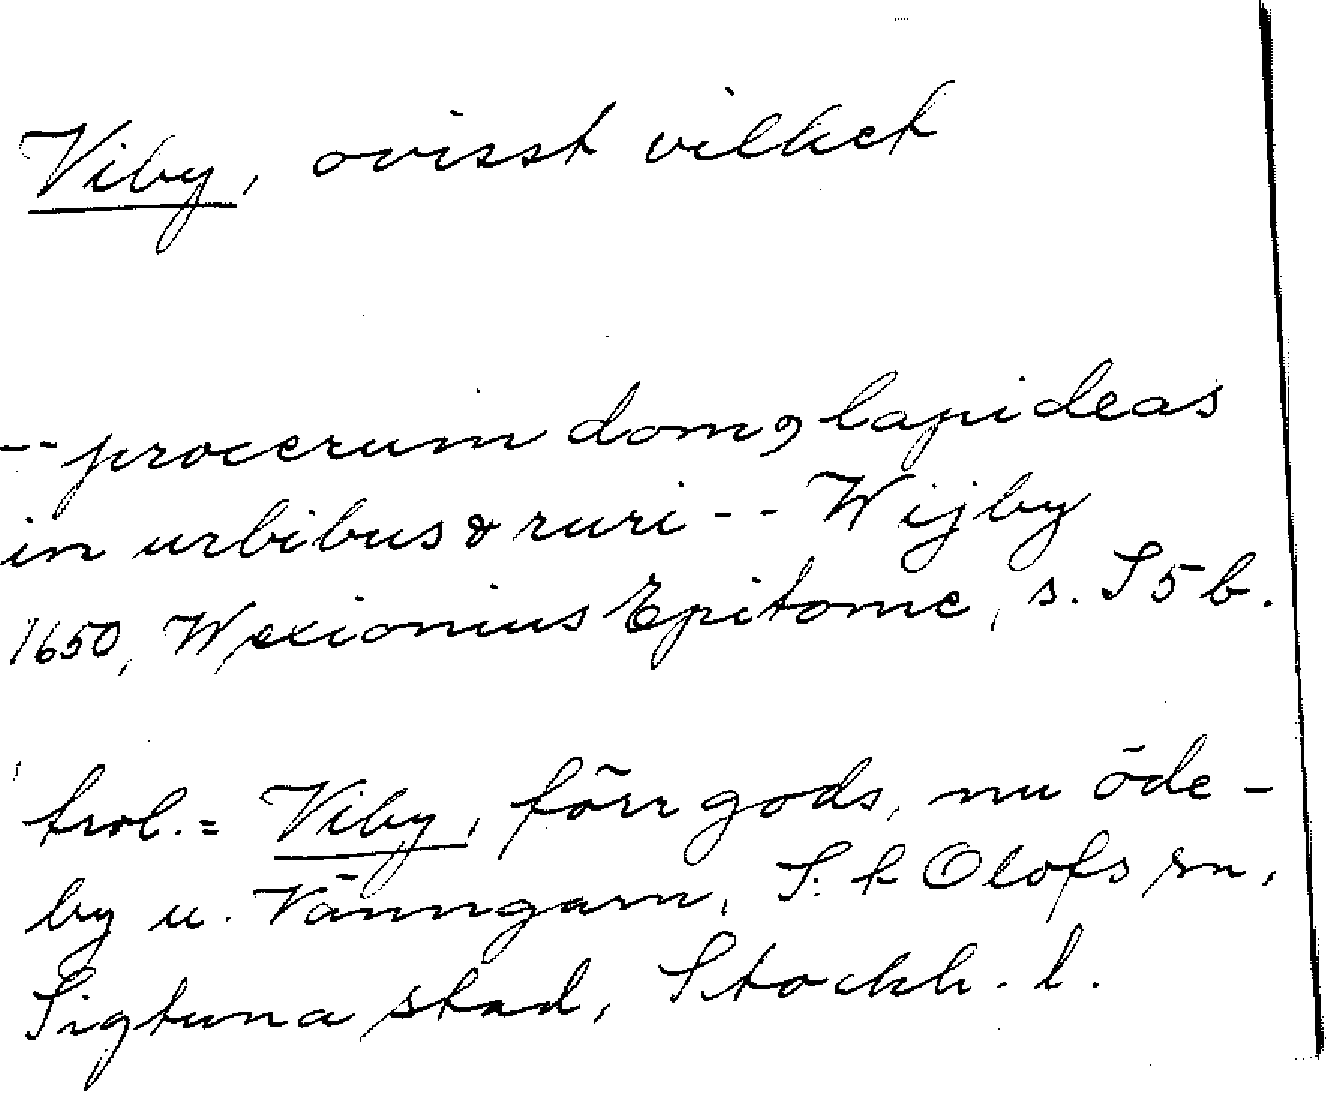 Viby, ovisst vilket
-- procerum domꝯ lapideas
in urbibus & ruri -- Wijby
1650, Wexionius Epitome, s. S 5 b.
trol. = Viby, förr gods, nu öde-
by u. Vänngarn, S:t Olofs sn,
Sigtuna stad, Stockh. l.